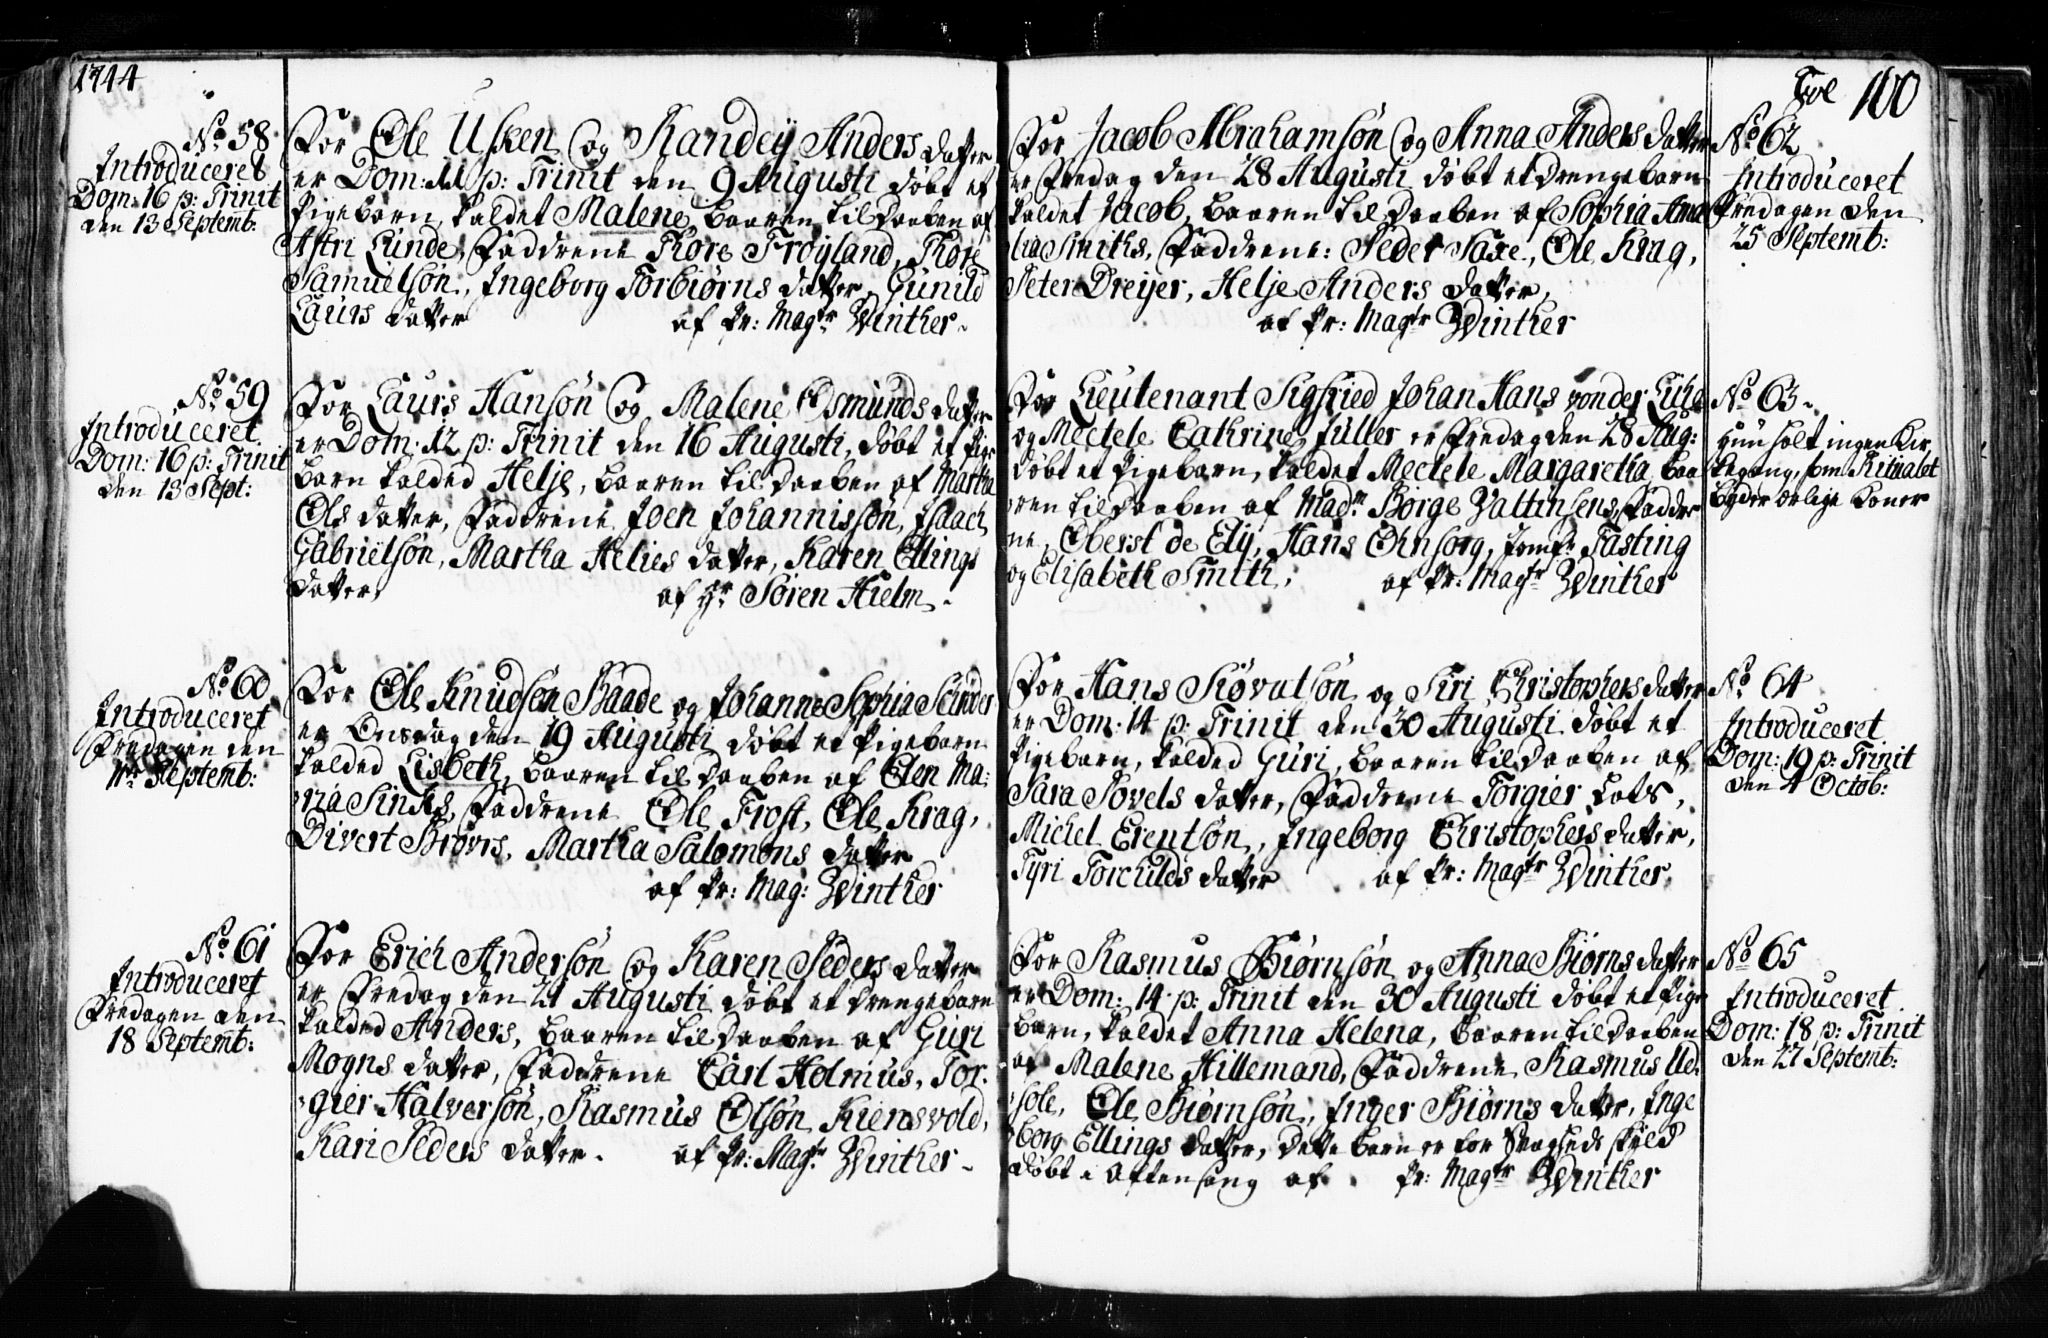 1744
No 58
Introduceret
Dom: 16 p: Trinit
den 13 Septemb:
For Ole Usken og Randey Anders datter
er Dom: 11 p: Trinit den 9 Augusti døbt et
Pigebarn, kaldet Malene, baaren til Daaben af
Astri Lunde, Faddrene Thore Frøyland, Thore
Samuelsøn, Ingeborg Torbiørns datter, Gunild
Laurs datter af Pr: Magr Winther.
No 59
Introduceret
Dom: 16 p: Trinit
den 13 Sept:
For Laurs Hansøn og Malene Osmunds datter
er Dom: 12 p: Trinit den 16 Augusti, døbt et Pige
barn kalded Helje, baaren til Daaben af Martha
Ols datter, Faddrene Joen Johannissøn, Isaach
Gabrielsøn, Martha Helies datter, Karen Ellings
datter, af Hr Søren Hielm.
No 60
Introduceret
Fredagen den
Septemb:
For Ole Knudsøn Baade og Johanne Sophia
er Onsdag den 19 Augusti døbt et Pigebarn
kalded Lisbeth, baaren til Daaben af Elen Ma:
ria Sincks, Faddrene Ole Frost, Ole Krag,
Divert Brøvrs, Martha Salomons datter
af Pr: Mag: Winther
No 61
Introduceret
Fredagen den
18 Septemb:
For Erich Andersøn og Karen Peders datter
er Fredag den 21 Augusti døbt et Drengebarn
kalded Anders, baaren til Daaben af Guri
Mogns datter, Faddrene Carl Holmus, Tor:
gier Halversøn, Rasmus Olsøn Kiensvold,
Kari Peders datter. af Pr: Magr Winther.
Fol 100
For Jacob Abrahamsøn og Anna Anders datter
er Fredag den 28 Augusti døbt et Drengebarn
kaldet Jacob, baaren til Daaben af Sophia Ama
lia Smiths, Faddrene: Peder Saxe, Ole Krag,
Peter Dreyer, Helje Anders datter,
af Pr: Magtr Winther
No 62
Introduceret
Fredagen den
25 Septemb:
For Lieutenant Sigfried Johan Hans von der Lühe
og Mectele Cathrine Füller er Fredag den 28 Aug:
døbt et Pigebarn, kaldet Mectele Margaretha, baa
ren til Daaben af Madm Børge Faddre
ne, Oberst de Ely, Hans Ohnsorg, Jomfr Fasting
og Elisabeth Smith, af Pr: Magtr Winther
No 63.
Hun holt ingen Kir,
kegang, som Ritualet
byder ærlige Koner
For Hans Siøvatsøn og Siri Christophersdatter
er Dom: 14 p: Trinit den 30 Augusti døbt et
Pigebarn, kalded Guri, baaren til Daaben af
Sara Povels datter, Faddrene Torgier Lots,
Michel Erentsøn, Ingeborg Christophersdatter,
Tyri Torchilds datter af Pr: Magtr Winther
No 64
Introduceret
Dom: 19 p: Trinit
den 4 Octob:
For Rasmus Biørnsøn og Anna Biørnsdatter
er Dom: 14 p: Trinit den 30 Augusti døbt et Pige
barn, kaldet Anna Helena, baaren til Daaben
af Malene Hillemand, Faddrene Rasmus Ud:
sole, Ole Biørnsøn, Inger Biørns datter, Inge
borg Ellings datter, dette barn er for Svagheds skyld
døbt i Aftensang af Pr: Magtr Winther
No 65
Introduceret
Dom: 18 p: Trinit
den 27 Septemb: